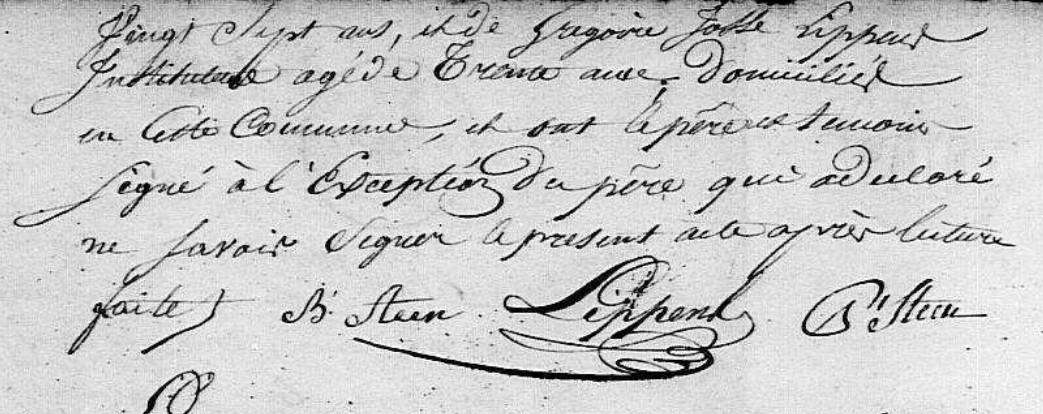 Vingt Sept ans, et de Gregoire Josse Lippens
Instituteur agé de Trente ans. Domiciliés
en Cette Commune, et ont le père et temoins
signé à l'Exception du père qui a declaré
ne savoir Signer le present acte après lecture
faite
B. Steen Lippens B. Steen